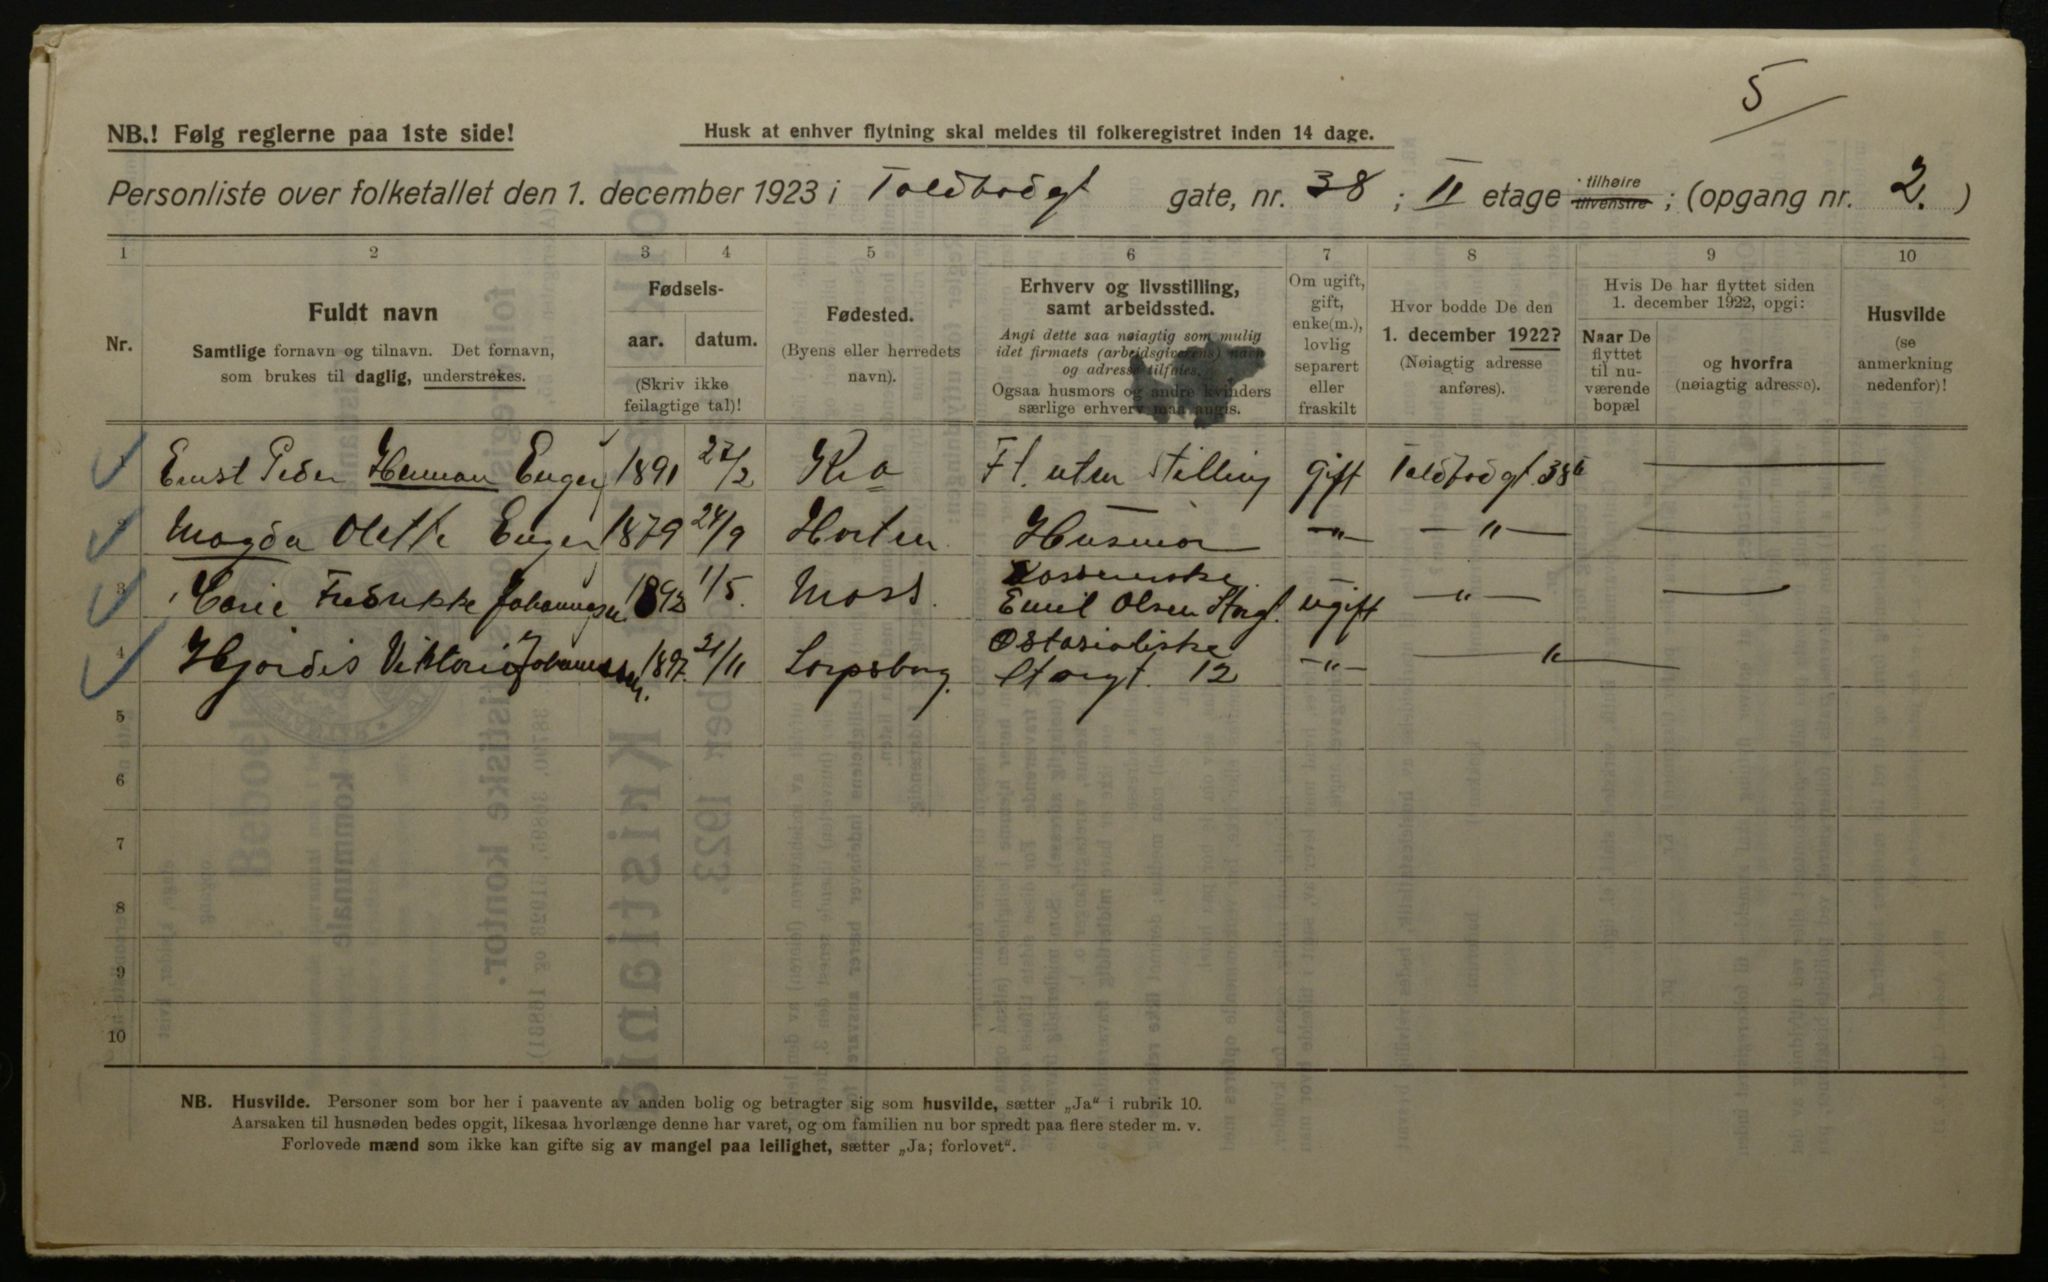 5
NB.! Følg reglerne paa 1ste side!
Husk at enhver flytning skal meldes til folkeregistret inden 14 dage.
Personliste over folketallet den 1. december 1923 i Toldbodgt gate, nr. 38 ; II etage tilhøire tilvenstre ; (opgang nr. 2. )
1 2 3 4 5 6 7 8 9 10
Nr.
Fuldt navn
Samtlige fornavn og tilnavn. Det fornavn,
som brukes til daglig, understrekes.
Fødsels-
aar. datum.
(Skriv ikke
feilagtige tal)!
Fødested.
(Byens eller herredets
navn).
Erhverv og livsstilling,
samt arbeidssted.
Angi dette saa nøiagtig som mulig
idet firmaets (arbeidsgiverens) navn
og adresse tilføies.
Ogsaa husmors og andre kvinders
særlige erhverv maa angis.
Om ugift,
gift,
enke(m.),
lovlig
separert
eller
fraskilt
Hvor bodde De den
1. december 1922?
(Nøiagtig adresse
anføres).
Hvis De har flyttet siden
1. december 1922, opgi:
Naar De
flyttet
til nu-
værende
bopæl
og hvorfra
(nøiagtig adresse).
Husvilde
(se
anmerkning
nedenfor)!
1 Ernst Peder Herman Enger 1891 27/2 Kra Ft. uten Stilling gift Toldbodgt. 38
2 Magda Olette Enger 1879 24/9 Horten Husmor —„— —„—
3 Fredrikke Johannesen 1/5. Moss. Emil Olsen Storgt. ugift —„—
4 Hjørdis Viktoria Johannesen. 1897. 21/11 Storgt. 12 —„— —„—
5
6
7
8
9
10
NB. Husvilde. Personer som bor her i paavente av anden bolig og betragter sig som husvilde, sætter „Ja“ i rubrik 10.
Aarsaken til husnøden bedes opgit, likesaa hvorlænge denne har varet, og om familien nu bor spredt paa flere steder m. v.
Forlovede mænd som ikke kan gifte sig av mangel paa leilighet, sætter „Ja; forlovet“.